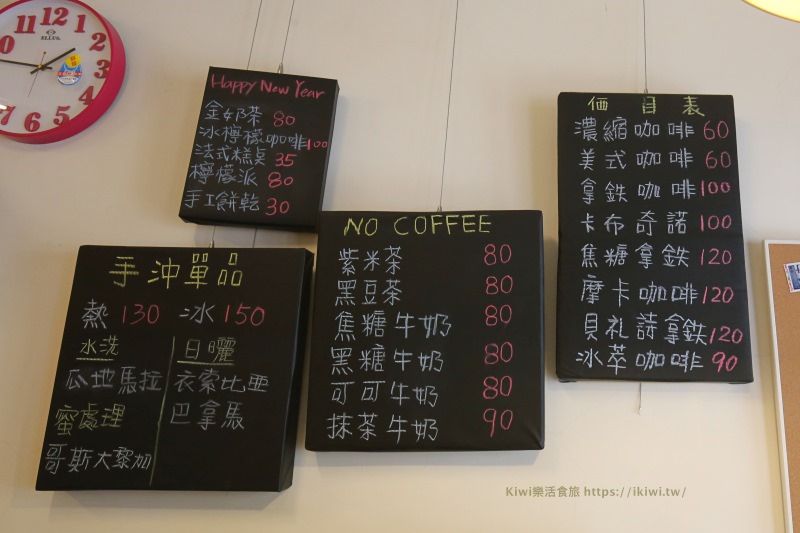 12
1
2
3
4
5
6
7
8
11
ELLUS
Happy New Year
金奶茶 80
冰檸檬咖啡100
法式糕点 35
檸檬派 80
手工餅乾 30
手沖單品
熱 130 冰 150
水洗
瓜地馬拉
蜜處理
哥斯大黎加
日曬
衣索比亜
巴拿馬
NO COFFEE
紫米茶 80
黑豆茶 80
焦糖牛奶 80
黑糖牛奶 80
可可牛奶 80
抹茶牛奶 90
価目表
濃縮咖啡 60
美式咖啡 60
拿鉄咖啡 100
卡布奇諾 100
焦糖拿鉄 120
摩卡咖啡 120
貝礼詩拿鉄 120
冰萃咖啡 90
Kiwi樂活食旅 https://ikiwi.tw/